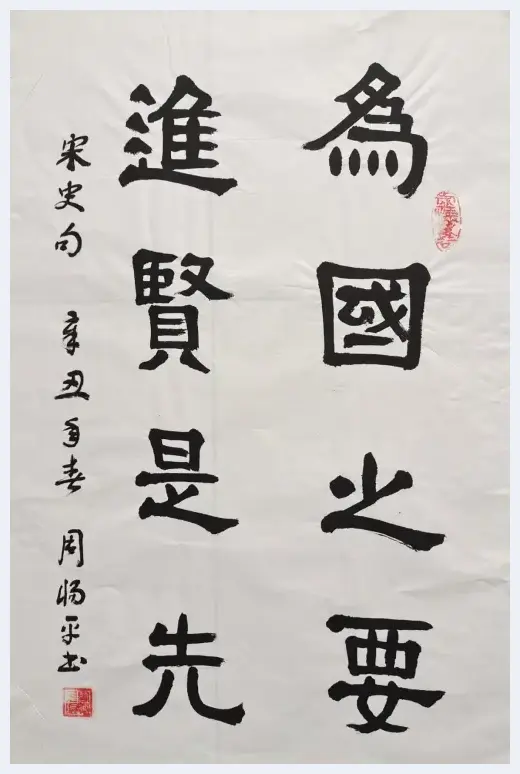 為國之要
進賢是先
宋史句 辛丑年春 周楊平书